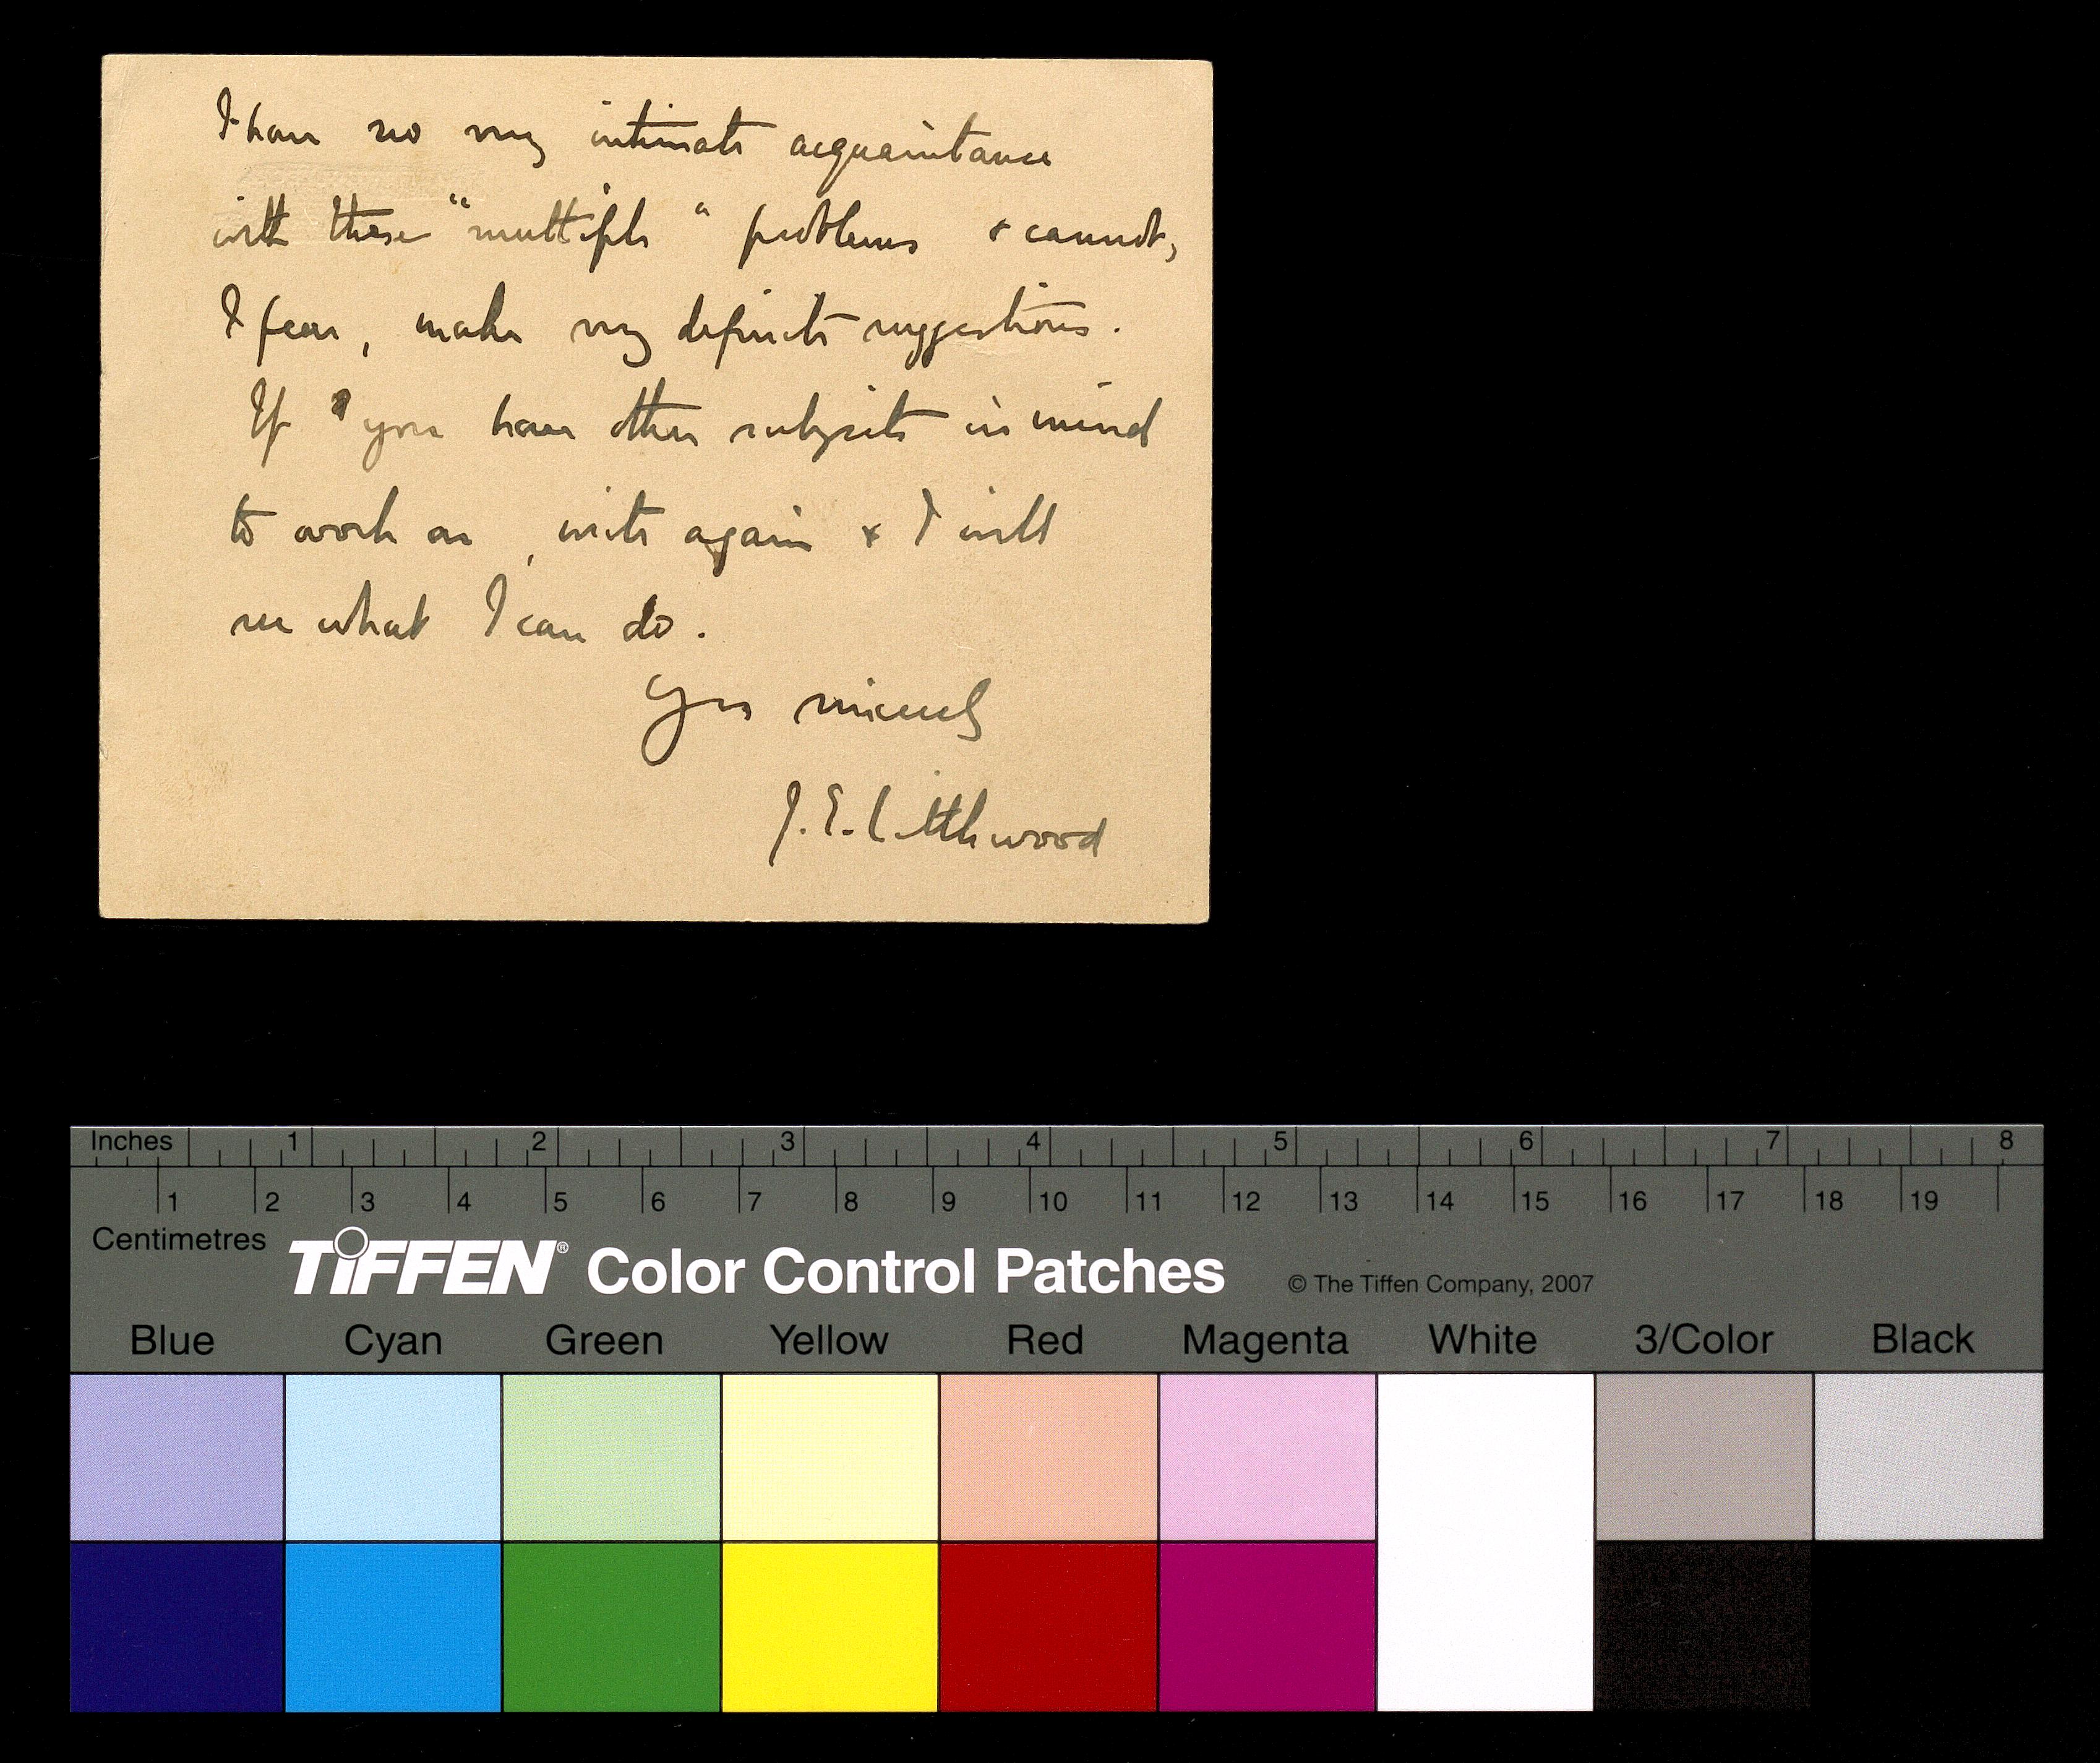 I have no very intimate acquaintance
with these "multiple" problems & cannot,
I fear, make very definite suggestions.
If you have other subjects in mind
to work on, write again & I will
see what I can do.
Yrs sincerely
J. E. Littlewood
Inches 1 2 3 4 5 6 7 8
1 2 3 4 5 6 7 8 9 10 11 12 13 14 15 16 17 18 19
Centimetres
TIFFEN® Color Control Patches © The Tiffen Company, 2007
Blue Cyan Green Yellow Red Magenta White 3/Color Black